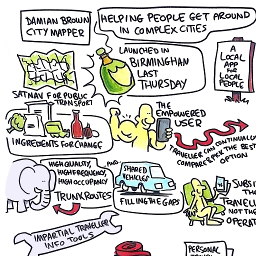 DAMIAN BROWN
CITY MAPPER
HELPING PEOPLE GET AROUND
IN COMPLEX CITIES
LAUNCHED IN
BIRMINGHAM
LAST
THURSDAY
A
LOCAL
APP
for
LOCAL
PEOPLE
SATNAV FOR PUBLIC
TRANSPORT
INGREDIENTS FOR CHANGE
THE
EMPOWERED
USER
TRAVELLER CAN CONTINUALLY
COMPARE & PICK THE BEST
OPTION
HIGH QUALITY,
HIGH FREQUENCY,
HIGH OCCUPANCY
TRUNK ROUTES
AND
SHARED
VEHICLES
FILLING THE GAPS
SUBSI
THE
TRAVELL
NOT THE
OPERAT
IMPARTIAL TRAVELLER
INFO TOOLS
PERSONAL